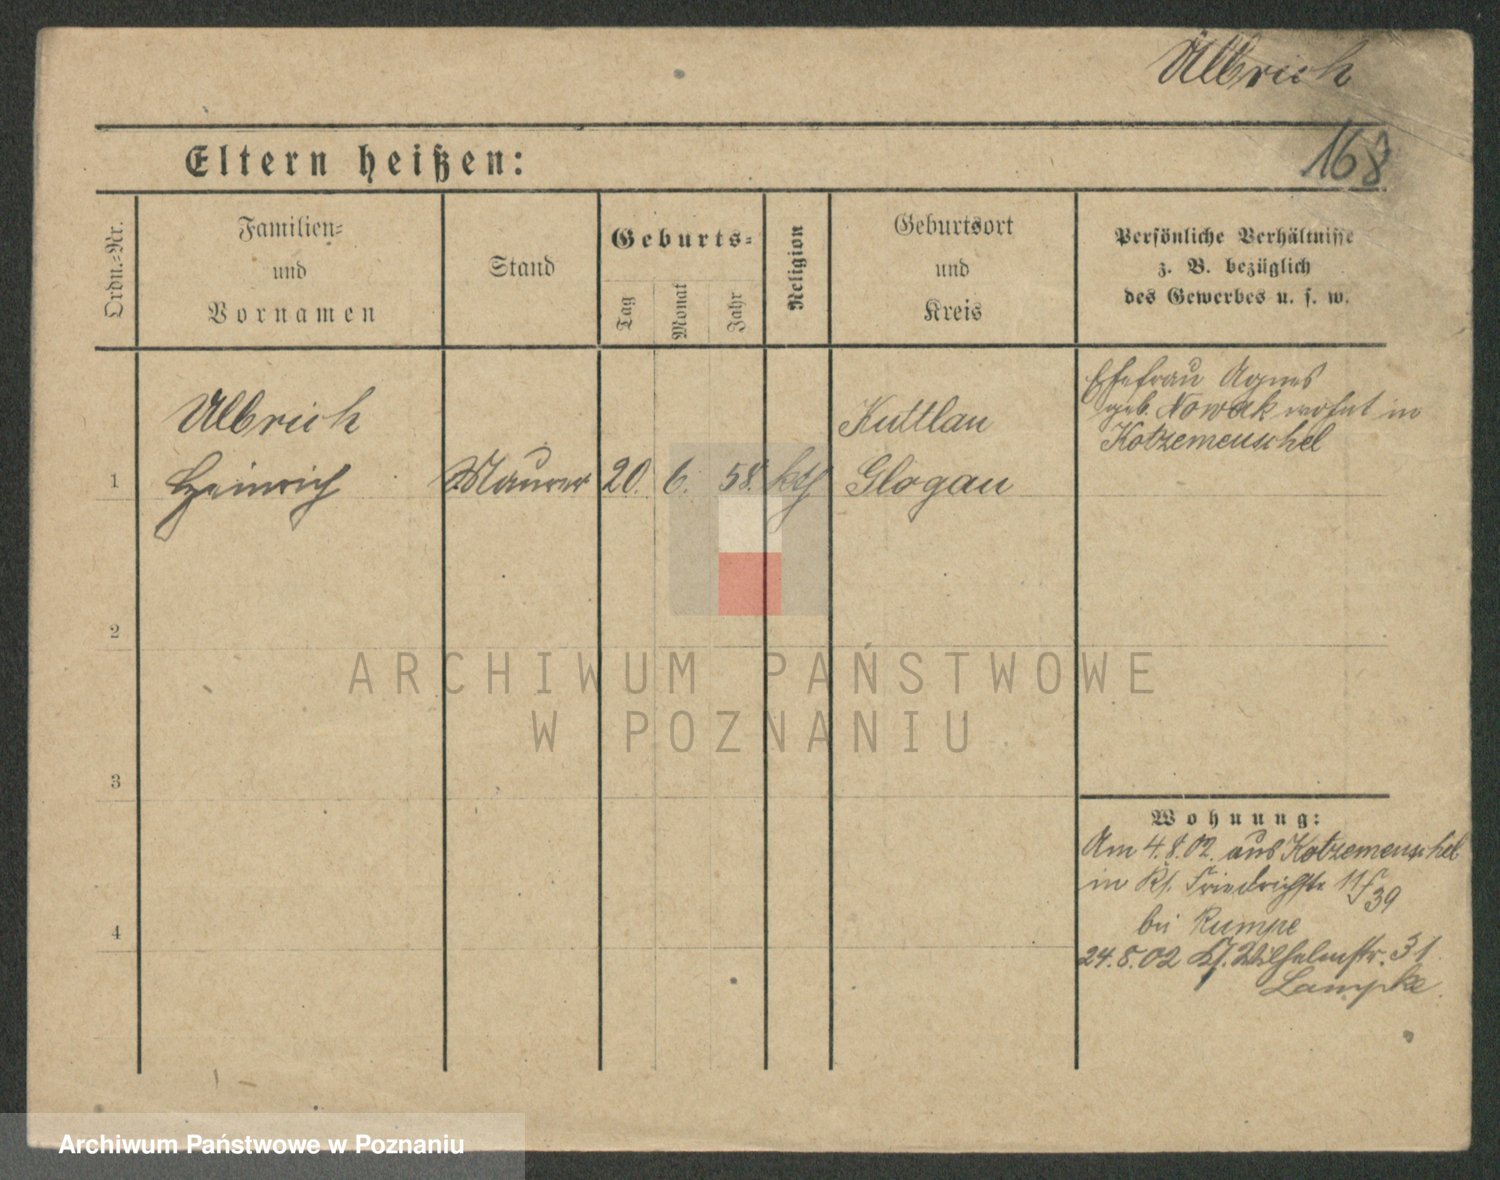 Ulbrich
168
Eltern heißen:
Ordn.-Nr.
Familien-
und
Vornamen
Stand
Geburts-
Tag
Monat
Jahr
Religion
Geburtsort
und
Kreis
Persönliche Verhältnisse
z. B. bezüglich
des Gewerbes u. s. w.
Ulbrich
Kuttlau
Ehefrau Agnes
geb. Nowak wohnt in
Kotzemeuschel
1 Heinrich Maurer 20. 6. 58. kth Glogau
2
ARCHIWUM PAŃSTWOWE
W POZNANIU
3
Wohnung:
Am 4.8.02. aus Kotzemeuschel
in Kl. Friedrichstr 11/39
4
bei Rumpe
24.8.02 Kl. Wilhelmstr. 31
Lampke
Archiwum Państwowe w Poznaniu